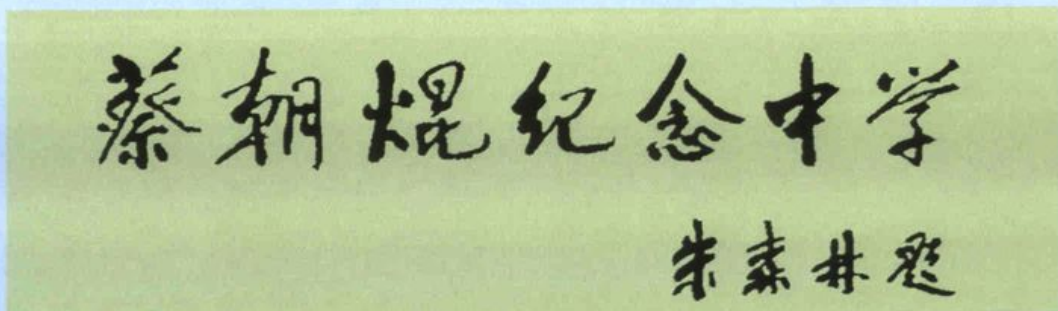 蔡朝焜纪念中学
朱森林题